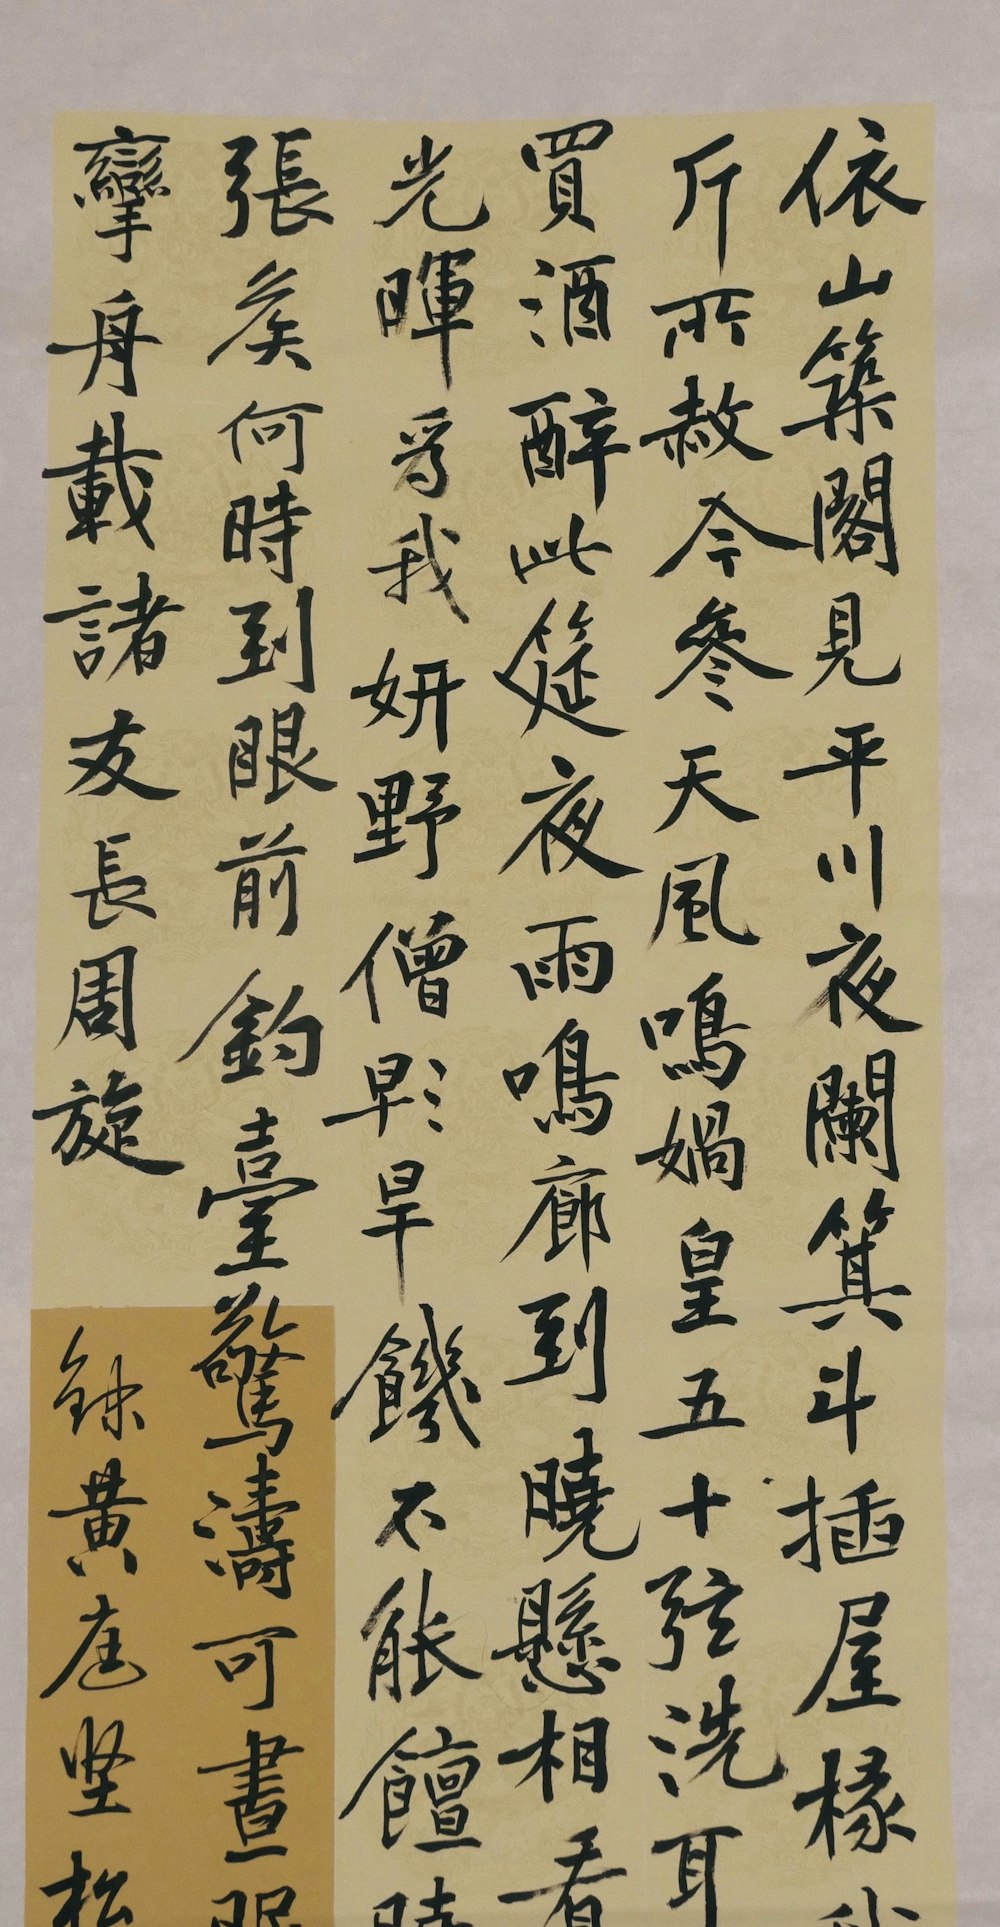 依山築閣見平川夜闌箕斗插屋椽我
斤所赦今參天風鳴媧皇五十弦洗耳
買酒醉此筵夜雨鳴廊到曉懸相看
光暉為我妍野僧早旱饑不能饘曉
張矦何時到眼前釣臺驚濤可晝眠
攣舟載諸友長周旋
錄黃庭坚松